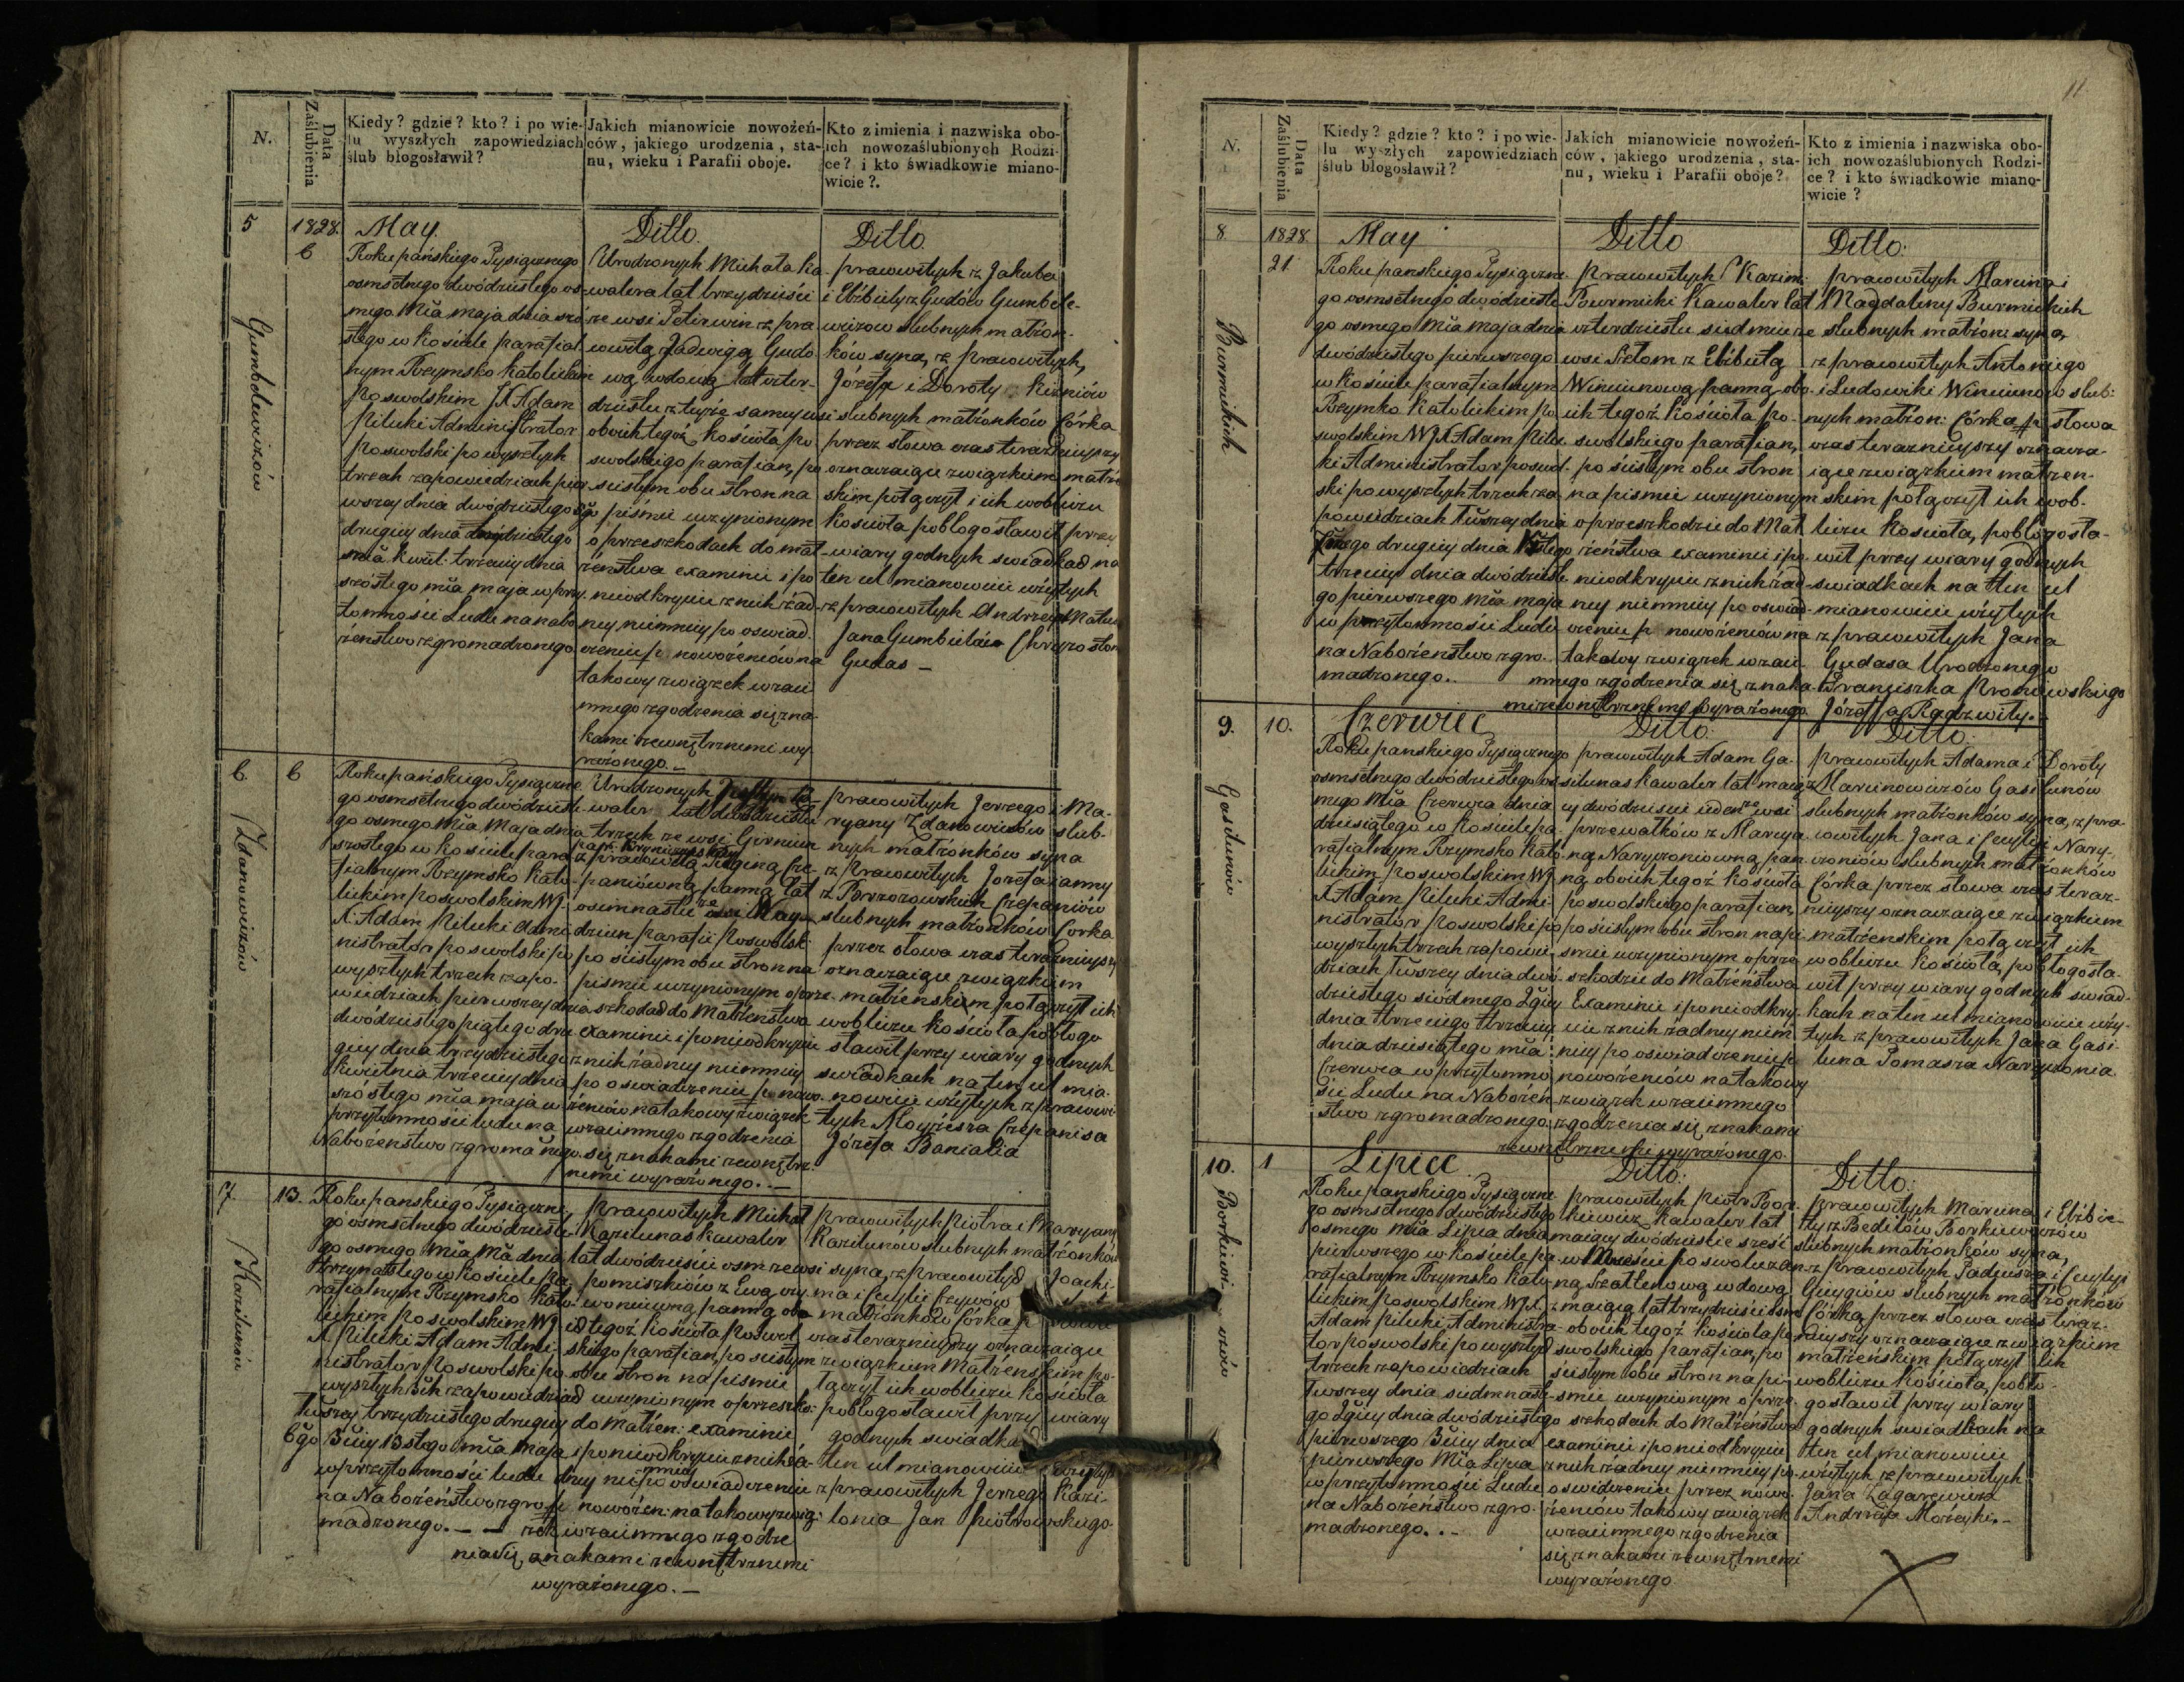 N.
Data Zaślubienia
Kiedy? gdzie? kto? i po wie-
lu wyszłych zapowiedziach
ślub błogosławił?
Jakich mianowicie nowożeń-
ców, jakiego urodzenia, sta-
nu, wieku i Parafii oboje.
Kto z imienia i nazwiska obo-
ich nowozaślubionych Rodzi-
ce? i kto świadkowie miano-
wicie?.
5
1828.
6
Gumbolewiczów
May.
Roku pańskiego Tysiącznego
osmsetnego dwódziestego os-
mego Mca maja dnia szó-
stego w kościele parafial
nym Rzymsko Katolickim
poswolskim JX Adam
Pilucki Administrator
poswolski po wyszłych
trzech zapowiedziach pier
wszey dnia dwódziestego
drugiey dnia
kwiet: trzeciey dnia
szóstego mca maja w przy-
tomności Ludu na nabo
żeństwo zgromadzonego
Ditto.
Urodzonych Michała Ka-
walera lat trzydzieści
ze wsi Petirwin z pra
wowitą Jadwigą Gudo
wą wdową lat czter-
dziestu z teyże samey wsi
oboich tegoż kościoła po
swolskiego parafian, po
scisłym obu stron na
pismie uczynionym
o przeszkodach do mał
żeństwa examinie i po
nieodkryciu z nich żad-
ney niemniey po oswiad-
czeniu p. nowożeniów na
takowy związek wzaie
mnego zgodzenia się zna-
kami zewnętrznemi wy
rażonego. –
Ditto
prawowitych z Jakuba
i Elżbiety z Gudów Gumbole-
wiczow slubnych małżon-
ków syna, z prawowitych,
Józefa i Doroty Kizniów
slubnych małżonków Córka
przez słowa czas teraznieyszy
oznaczaiące związkiem małżeń
skim połączył i ich w obliczu
Kościoła pobłogosławił przy
wiary godnych swiadkach na
ten cel mianowicie użytych
z prawowitych Andrzeja
Jana Chryzostom
Gudas –
6
6
Zdanowiczów
Roku pańskiego Tysiączne
go osmsetnego dwódzieste-
go osmego Mca Maja dnia
szóstego w kosciele para
fialnym Rzymsko Kato-
lickim poswolskim WJ-
X. Adam Pilucki Admi-
nistrator poswolski po
wyszłych trzech zapo-
wiedziach pierwszey dnia
dwódziestego piątego dru
giey dnia trzydziestego
kwietnia trzeciey dnia
szóstego mca maja w
przytomności ludu na
Nabożeństwo zgroma nego.
Urodzonych
waler lat dwódziestu
trzech ze wsi Girniun
z prawowitą Cze-
paniówną panną lat
osimnastu ze wsi
dziun parafii Poswolsk:
po scisłym obu stron na
pismie uczynionym o prze-
szkodach do Małżeństwa
examinie i po nieodkryciu
z nich żadney niemniey
po oswiadczeniu p. nowo
żeniów na takowy związek
wzaiemnego zgodzenia
się znakami zewnętrz
nemi wyrażonego. –
prawowitych Jerzego i Ma-
ryany Zdanowiczów slub-
nych małżonków syna
z prawowitych Jozefa i anny
z Brzozowskich Czepaniów
slubnych małżonków Córka
przez słowa czas teraznieyszy
oznaczaiące związkiem
małżeńskim połączył ich
w obliczu Kościoła pobłogo
sławił przy wiary godnych
swiadkach na ten cel mia-
nowicie użytych z prawowi
tych Moyżesza Czepanisa
Józefa Banialia
7
13.
Kazilunów
Roku panskiego Tysiączne
go osmsetnego dwódzieste
go osmego Mca Ma dnia
trzynastego w kosciele pa
rafialnym Rzymsko Kato
lickim Poswolskim WJ
X Pilucki Adam Admi-
nistrator Poswolski po
wyszłych 3ch zapowiedziach
1wszey trzydziestego drugiey
6go 3ciey 13stego mca maja
w przytomności ludu
na Nabożeństwo zgro
madzonego. – –
Prawowitych Michał
Kazilunas kawaler
lat dwódzieści osm ze wsi
pomiszkiów z Ewą czy-
woniewną panną obo
ich tegoż kościoła Poswol
skiego parafian, po scisłym
obu stron na pismie
uczynionym o przeszko:
do małżen: examinie
i po nieodkryciu z nich ża-
dney niemniey po oswiadczeniu
p nowożen: na takowy zwią:
zek wzaiemnego zgodze
nia się znakami zewnętrznemi
wyrażonego. –
Prawowitych Piotra i Maryany
Kazilunów slubnych małżonków
syna, z prawowitych Joachi-
ma i Cecylii Czywów
małżonków Córka p słowa
czas teraznieyszy oznaczaiące
związkiem Małżenskim po-
łączył ich w obliczu Kościoła
pobłogosławił przy wiary
godnych swiadkach
ten cel mianowicie użytych
z prawowitych Jerzego Kazi-
lonia Jan Piotrowskiego
11
N.
Data Zaślubienia
Kiedy? gdzie? kto? i po wie-
lu wyszłych zapowiedziach
ślub błogosławił?
Jakich mianowicie nowożeń-
ców, jakiego urodzenia, sta-
nu, wieku i Parafii oboje?
Kto z imienia i nazwiska obo-
ich nowozaślubionych Rodzi-
ce? i kto świadkowie miano-
wicie?
8
1828.
21.
Burmickich
May
Roku panskiego Tysiączne
go osmsetnego dwódzieste
go osmego Mca maja dnia
dwódziestego pierwszego
w kościele parafialnym
Rzymko Katolickim po
swolskim WJX Adam Pilu
cki Administrator poswol-
ski po wyszłych trzech za
powiedziach 1wszey dnia
drugiey dnia
trzeciey dnia dwódzieste
go pierwszego mca maja
w przytomności Ludu
na Nabożeństwo zgro-
madzonego..
Ditto
Prawowitych Kazim:
Burmicki Kawaler lat
czterdziestu siedmiu ze
wsi Sietom z Elżbietą
Winciunową panną obo-
ich tegoż kościoła po-
swolskiego parafian,
po scisłym obu stron
na pismie uczynionym
o przeszkodzie do Mał
żeństwa examinie i po
nieodkryciu z nich żad-
ney niemniey po oswiad-
czeniu p. nowożeniów na
takowy związek wzaie-
mnego zgodzenia się znaka-
mi zewnętrznemi wyrażonego
Ditto.
prawowitych Marcina i
Magdaleny Burmickich
slubnych małżon: syna,
z prawowitych Antoniego
i Ludowiki Winciunow slub:
nych małżon: Córka p słowa
czas teraznieyszy oznacza-
iące związkiem małżen-
skim połączył ich w ob-
liczu Kościoła, pobłogosła-
wił przy wiary godnych
swiadkach na ten cel
mianowicie użytych
z prawowitych Jana
Gudasa Urodzonego
Franciszka
Józefa Radzwiły.
9.
10.
Gasilunów
Czerwiec
Roku panskiego Tysiącznego
osmsetnego dwódziestego os-
mego Mca Czerwca dnia
dziesiątego w Kościele pa-
rafialnym Rzymsko Kato-
lickim Poswolskim WJ
X Adam Pilucki Admi-
nistrator Poswolski po
wyszłych trzech zapowie-
dziach 1wszey dnia dwó-
dziestego siódmego 2giey
dnia trzeciego trzeciey
dnia dziesiątego mca
Czerwca w przytomno
ści Ludu na Nabożeń
stwo zgromadzonego
Ditto.
prawowitych Adam Ga-
silunas kawaler lat maią
cy dwódzieści ieden ze wsi
przewałków z Marya-
ną Naryzoniowną pan
ną oboich tegoż kościoła
Poswolskiego parafian
po ścisłym obu stron na pi
smie uczynionym o prze
szkodzie do Małżeństwa
Examinie i po nieodkry-
ciu z nich żadney niem
niey po oswiadczeniu p
nowożeniów na takowy
związek wzaiemnego
zgodzenia się znakami
zewnętrznemi wyrażonego.
Ditto.
prawowitych Adama i Doroty
z Marcinowiczów Gasilunów
slubnych małżonków syna, z pra-
wowitych Jana i Cecylii Nary-
zoniów slubnych małżonków
Córka przez słowa czas teraz-
nieyszy oznaczaiące związkiem
małżenskim połączył ich
w obliczu Kościoła, pobłogosła-
wił przy wiary godnych swiad-
kach na ten cel mianowicie uży-
tych z prawowitych Jana Gasi-
luna Tomasza Naryzonia
10.
1
Borkiewi-czów
Lipiec
Roku panskiego Tysiączne-
go osmsetnego dwódziestego
osmego Mca Lipca dnia
pierwszego w kościele pa-
rafialnym Rzymsko Kato
lickim Poswolskim WJX
Adam Pilucki Administra-
tor poswolski po wyszłych
trzech zapowiedziach
1wszey dnia siedmnaste
go 2giey dnia dwódziestego
pierwszego 3ciey dnia
pierwszego Mca Lipca
w przytomności Ludu
na Nabożeństwo zgro-
madzonego. . –
Ditto.
prawowitych Piotr Bor-
kiewicz Kawaler lat
maiący dwódzieście sześć
w Mieście poswolu z An-
ną Szatlenową wdową
maiącą lat trzydzieści osm
oboich tegoż kościoła po
swolskiego parafian, po
scisłym obu stron na pi-
smie uczynionym o prze-
szkodach do Małżeństwa
examinie i po nieodkryciu
z nich żadney niemniey po-
oswidczeniu przez nowo-
żeniów takowy związek
wzaiemnego zgodzenia
się znakami zewnętrznemi
wyrażonego
Ditto.
Prawowitych Marcina i Elżbie-
ty z Beditów Borkiewiczów
slubnych małżonków syna,
z Prawowitych Tadeusza i Cecylyi
Giegiów slubnych małżonków
Córka przez słowa czas teraz-
nieyszy oznaczaiące związkiem
małżeńskim połączył ich
w obliczu Kościoła, pobło-
gosławił przy wiary
godnych swiadkach na
ten cel mianowicie
użytych z prawowitych
Jana Zagarewicza
Andrzeja Morzyki. –